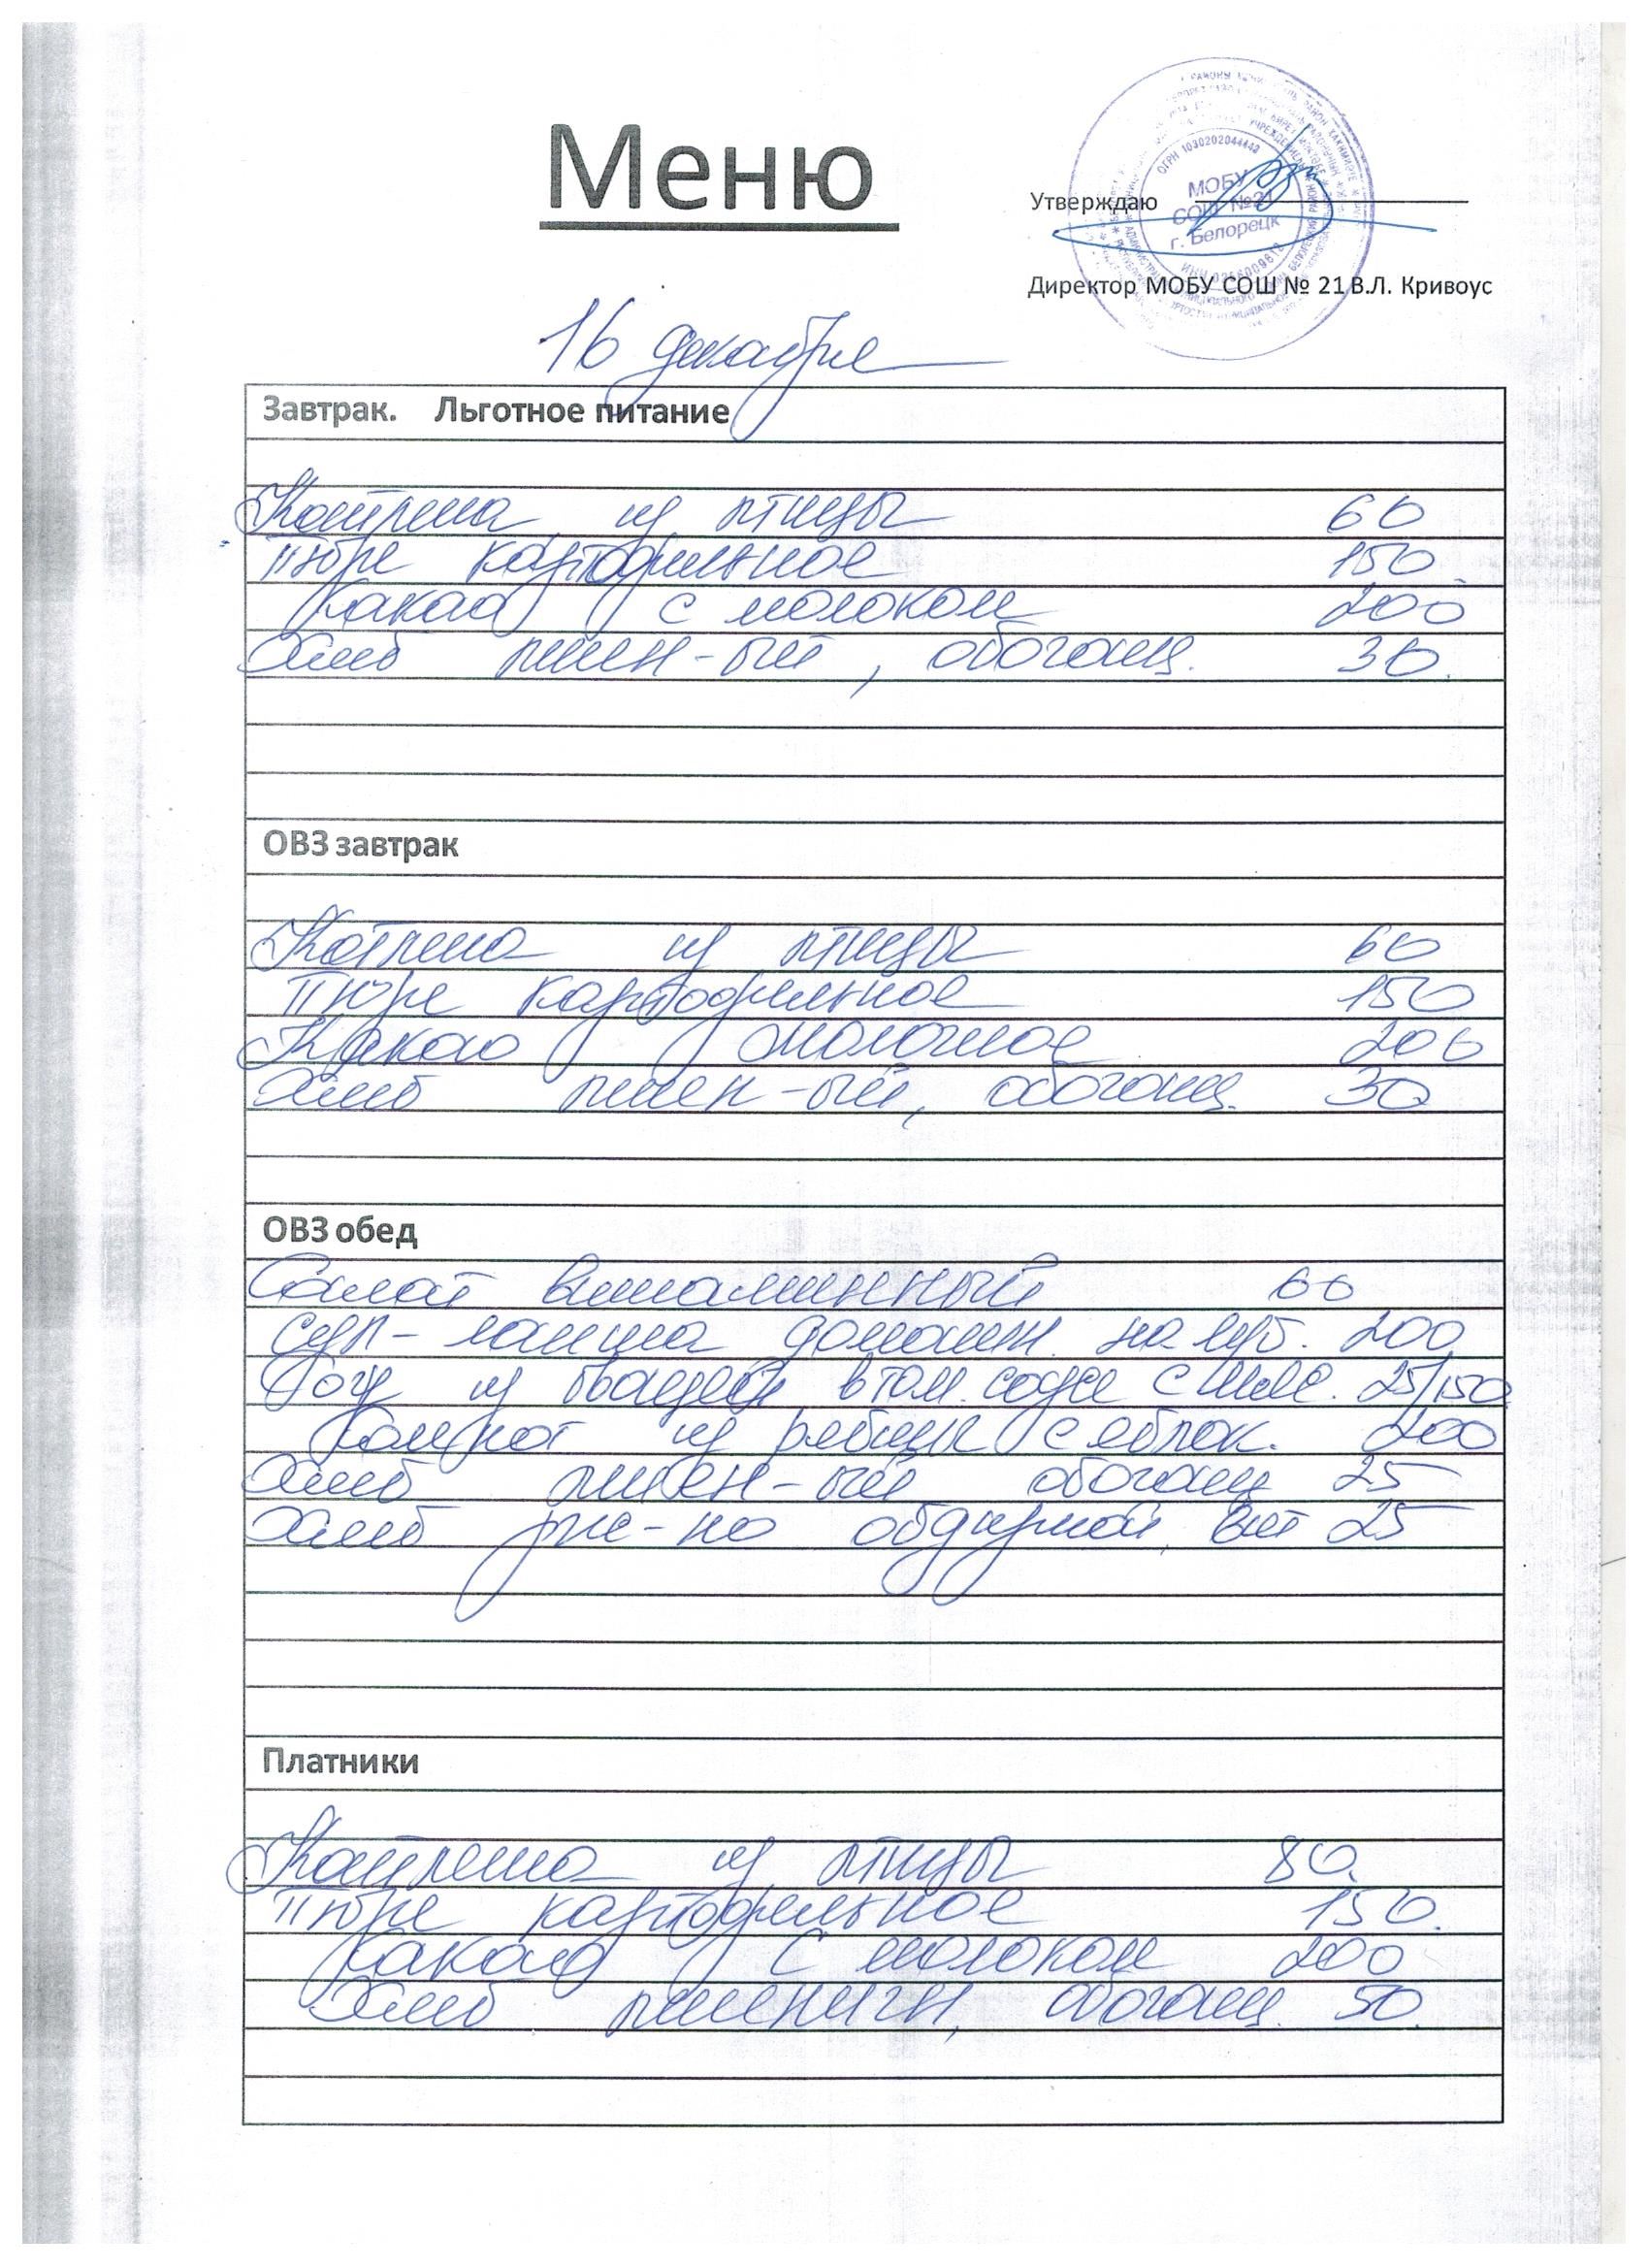 Меню
Утверждаю
МОБУ
СОШ №21
г. Белорецк
ОГРН 1030202044443
Директор МОБУ СОШ № 21 В.Л. Кривоус
16 декабря
Завтрак. Льготное питание
Котлета из птицы 60
Пюре картофельное 150
Какао с молоком 200
Хлеб пшен-ый, обогащ. 30.
ОВЗ завтрак
Котлета из птицы 60
Пюре картофельное 150
Какао молочное 200
Хлеб пшен-ый, обогащ. 30
ОВЗ обед
Салат витаминный 60
Суп-лапша домашн. на 200
из говядины в том. соусе с 25/150
Компот из с яблок. 200
Хлеб пшен-ый обогащ 25
Хлеб рж-но обдирной, вит 25
Платники
Котлета из птицы 80.
Пюре картофельное 150.
Какао с молоком 200
Хлеб пшеничн, обогащ. 50.